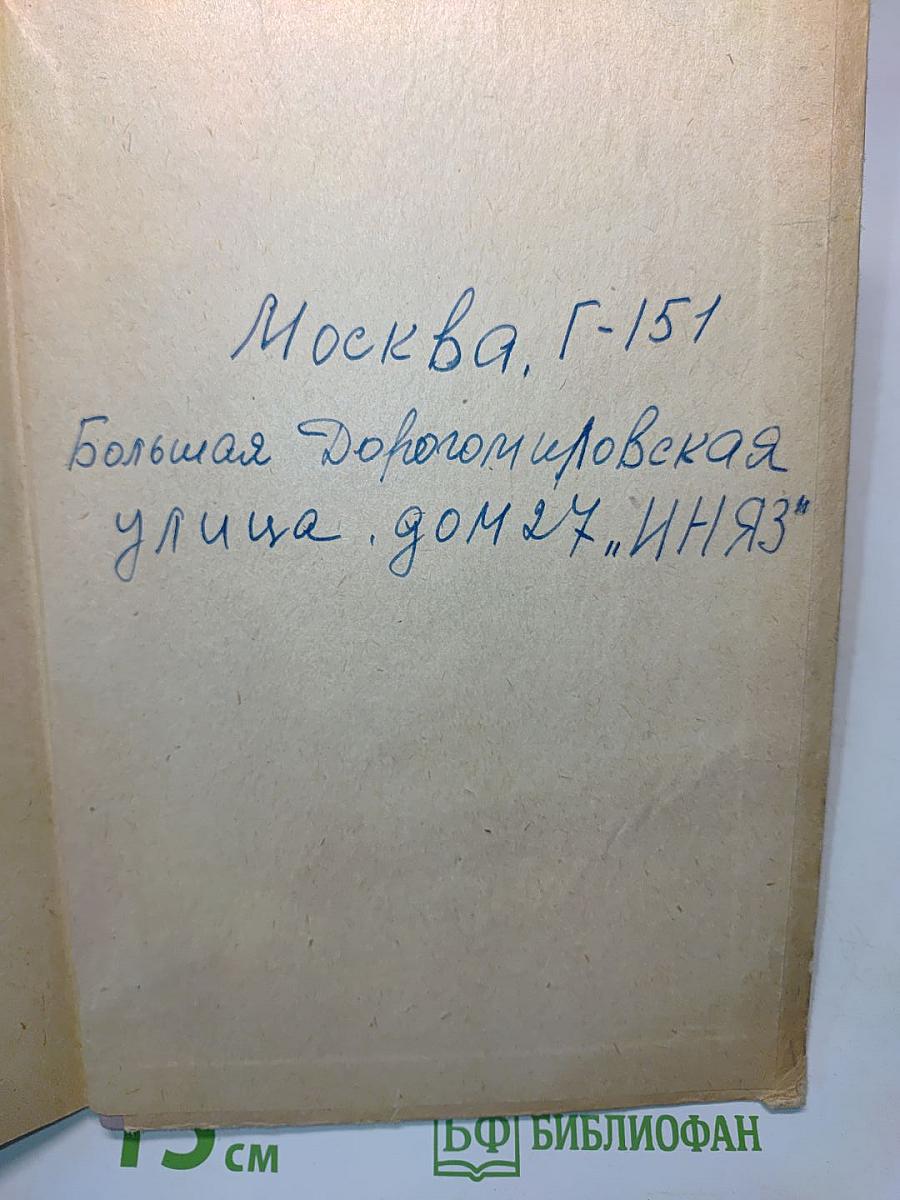 Москва, Г-151
Большая Дорогомиловская
улица. дом 27 „ИНЯЗ"
15 см
БФ БИБЛИОФАН